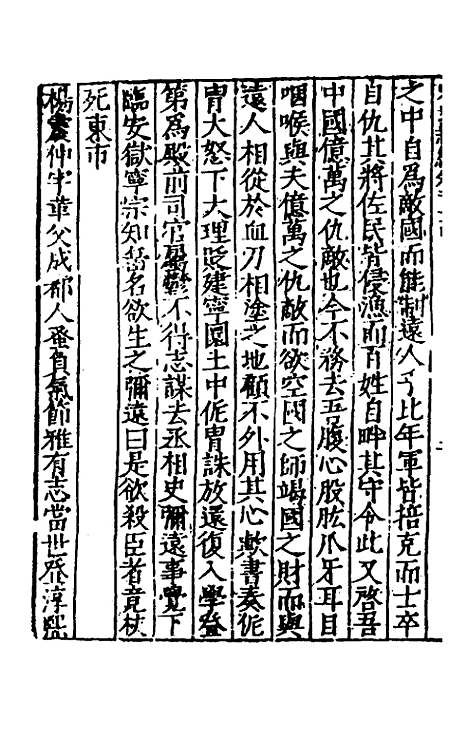 之中自為敵國而能制遠人乎比年軍皆掊克而士卒
自仇其將佐民皆侵漁而百姓自畔其守令此又啓吾
中國億萬之仇敵也今不務去吾腹心股肱爪牙耳目
咽喉與夫億萬之仇敵而欲空國之師竭國之財而與
遠人相從於血刃相塗之地顧不外用其心歟書奏侂
胄大怒下大理貶建寧園土中侂胄誅放還復入學登
第為殿前司官屬鬱不得志謀去丞相史彌遠事覺下
臨安獄寧宗知岳名欲生之彌遠曰是欲殺臣者竟杖
死東市
楊震仲字革父成都人蚤負氣節雅有志當世登淳熙